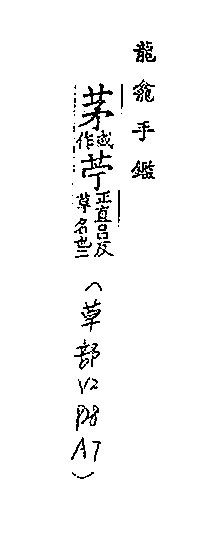 龍龕手鑑
茅或作苧正直呂反草名也二(草部V2P8A7)